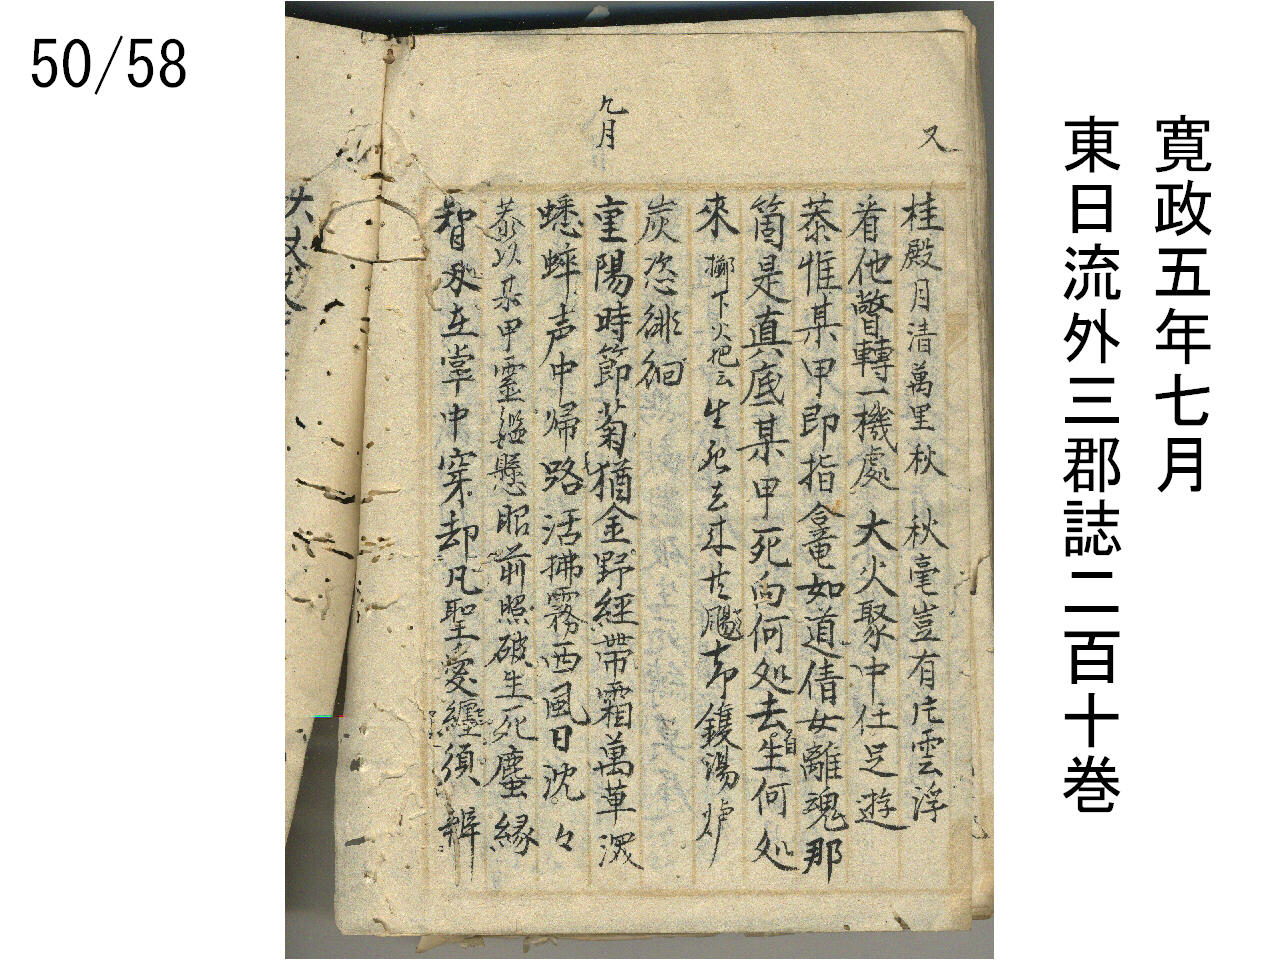 50/58
寛政五年七月
東日流外三郡誌二百十巻
又
桂殿月清萬里秋 秋毫豈有片雲浮
看他瞥轉一機處 大火聚中任足遊
恭惟某甲即指 如道倩女離魂那
箇是真底某甲死向何処去生自何処
來 擲下火把云生死去来共 却鑊湯炉
炭恣徘徊
九月
重陽時節菊猶金野經帯霜萬草深
蟋蟀声中帰路活拂霧西風日沈々
恭以某甲霊鑑懸昭前照破生死塵縁
智 在掌中穿却凡聖愛纏須